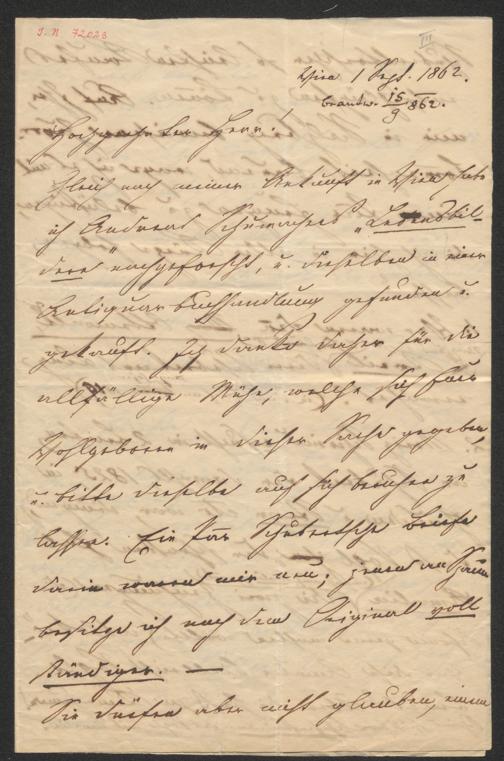 I. N. 72023
III
Wien 1 Sept. 1862.
beantw. 15/9 862.
Hochgeehrter Herr!
Gleich nach meiner Ankunft in Wien habe
ich Andreas Schumachers „Lebensbil-
der" nachgeforscht, u. dieselben in einer
Antiquar buchhandlung gefunden u.
gekauft. Ich danke daher für die
allfällige Mühe, welche sich Euer
Wohlgeboren in dieser Sache gegeben,
u. bitte dieselbe auf sich beruhen zu
lassen. Ein Par Schubertsche Briefe
darin waren mir neu; jenen an
besitze ich nach dem Original voll
ständiger. —
Sie dürfen aber nicht glauben, einem